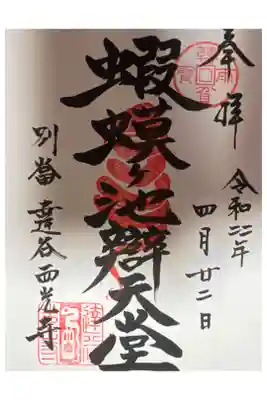 奉拝
令和二年
四月廿二日
蝦蟆ヶ池辯天堂
別當 達谷西光寺